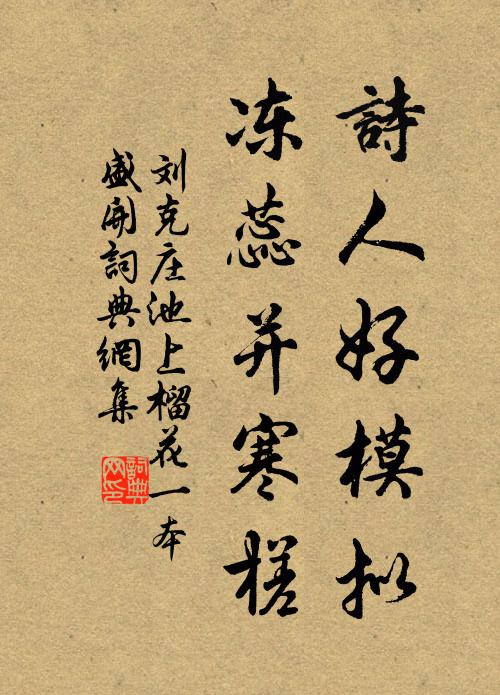 詩人好模拟
冻蕊并寒槎
刘克庄池上榴花一本
盛開詞典網集
詞典
网印